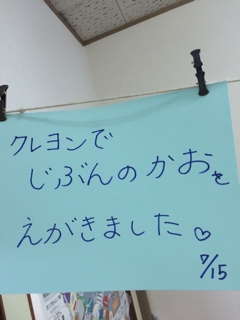 クレヨンで
じぶんのかおを
えがきました♡
7/15